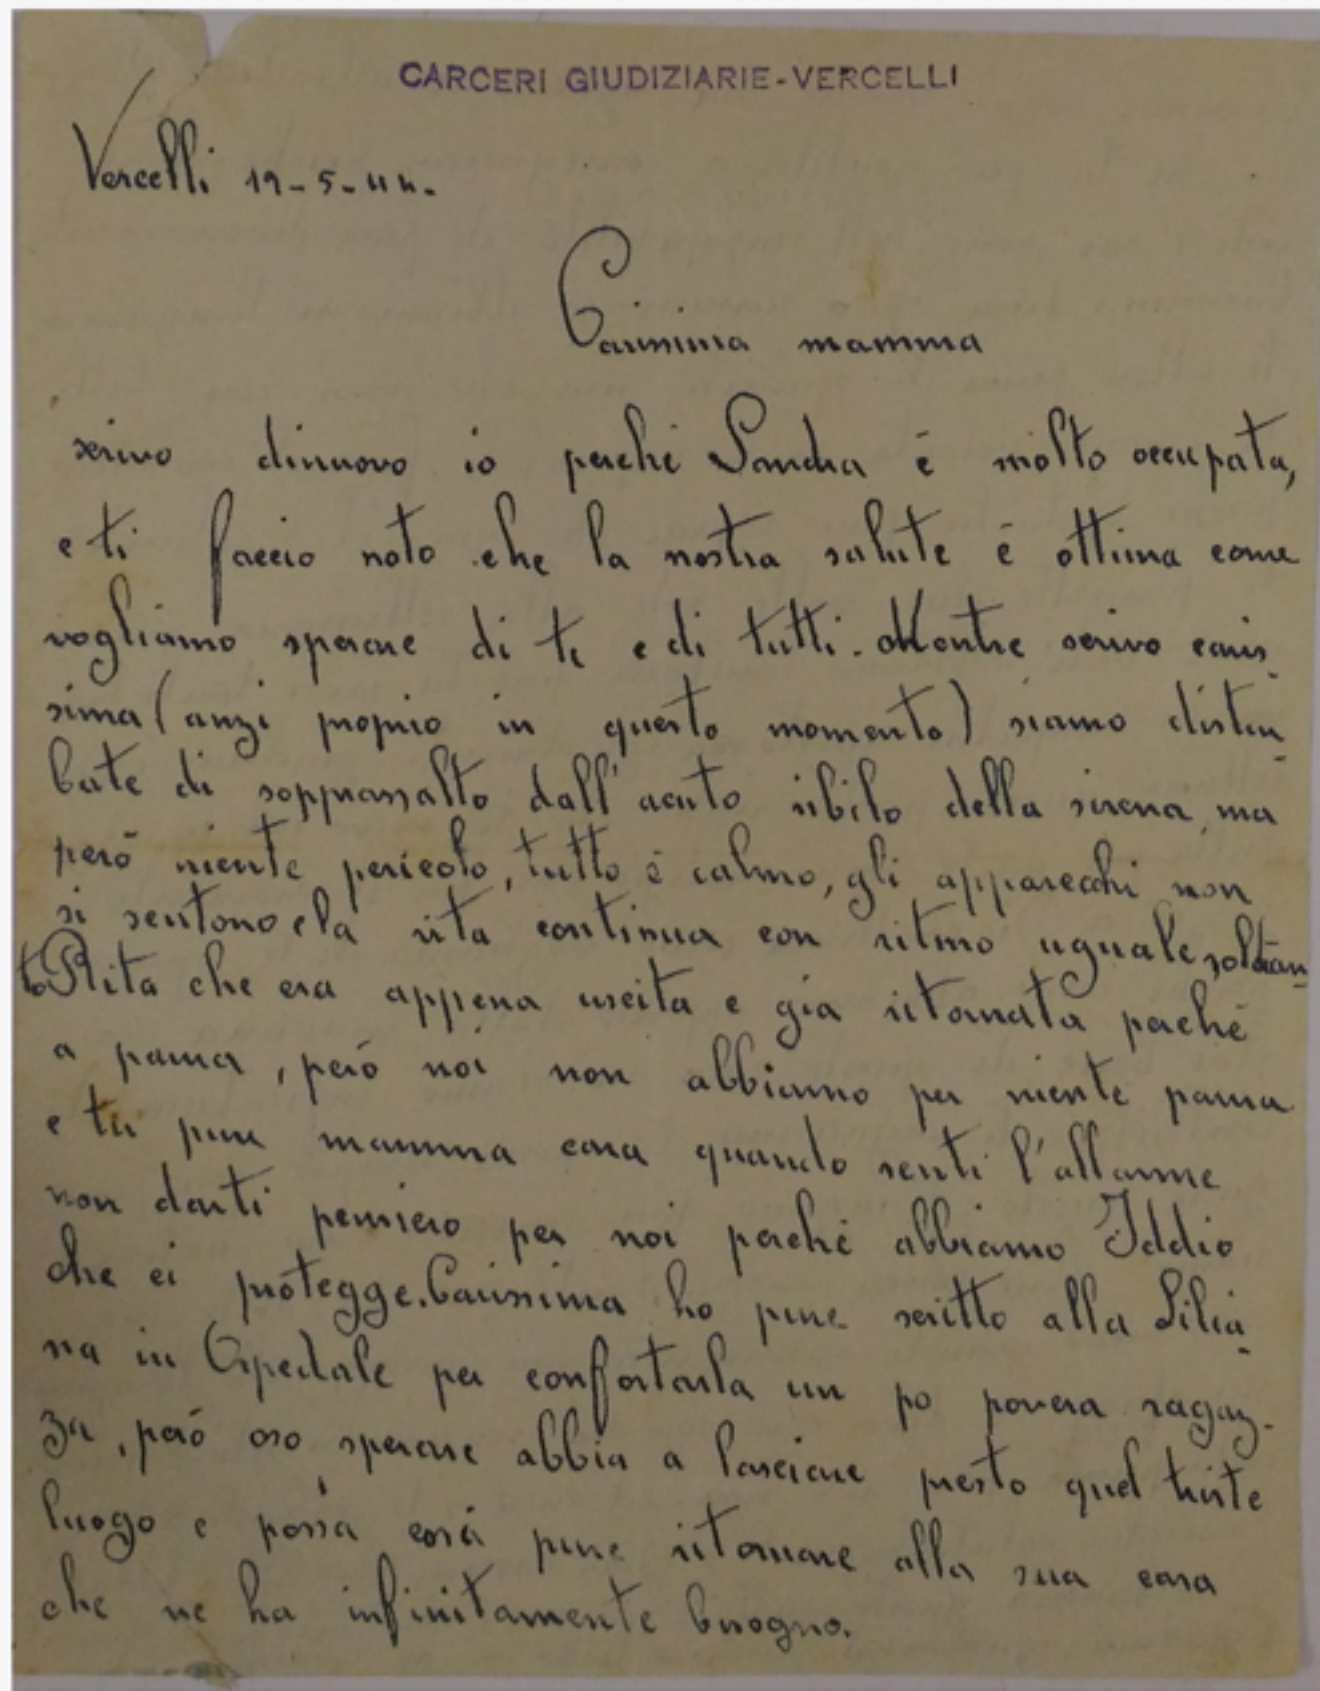 CARCERI GIUDIZIARIE-VERCELLI
Vercelli 19-5-44.
Carissima mamma
scrivo dinuovo io perché Sandra é molto occupata,
e ti faccio noto che la nostra salute é ottima come
vogliamo sperare di te e di tutti. Mentre scrivo caris-
sima (anzi proprio in questo momento) siamo distur-
bate di soprassalto dall'acuto sibilo della sirena, ma
però niente pericolo, tutto é calmo, gli apparecchi non
si sentono e la vita continua con ritmo uguale, soltan-
to Rita che era appena uscita e gia ritornata perché
a paura, però noi non abbiamo per niente paura
e tu pure mamma cara quando senti l'allarme
non darti pensiero per noi perché abbiamo Iddio
che ci protegge. Carissima ho pure scritto alla Lilia-
na in Ospedale per confortarla un po povera ragaz-
za, peró oso sperare abbia a lasciare presto quel triste
luogo e possa cosi pure ritornare alla sua casa
che ne ha infinitamente bisogno.